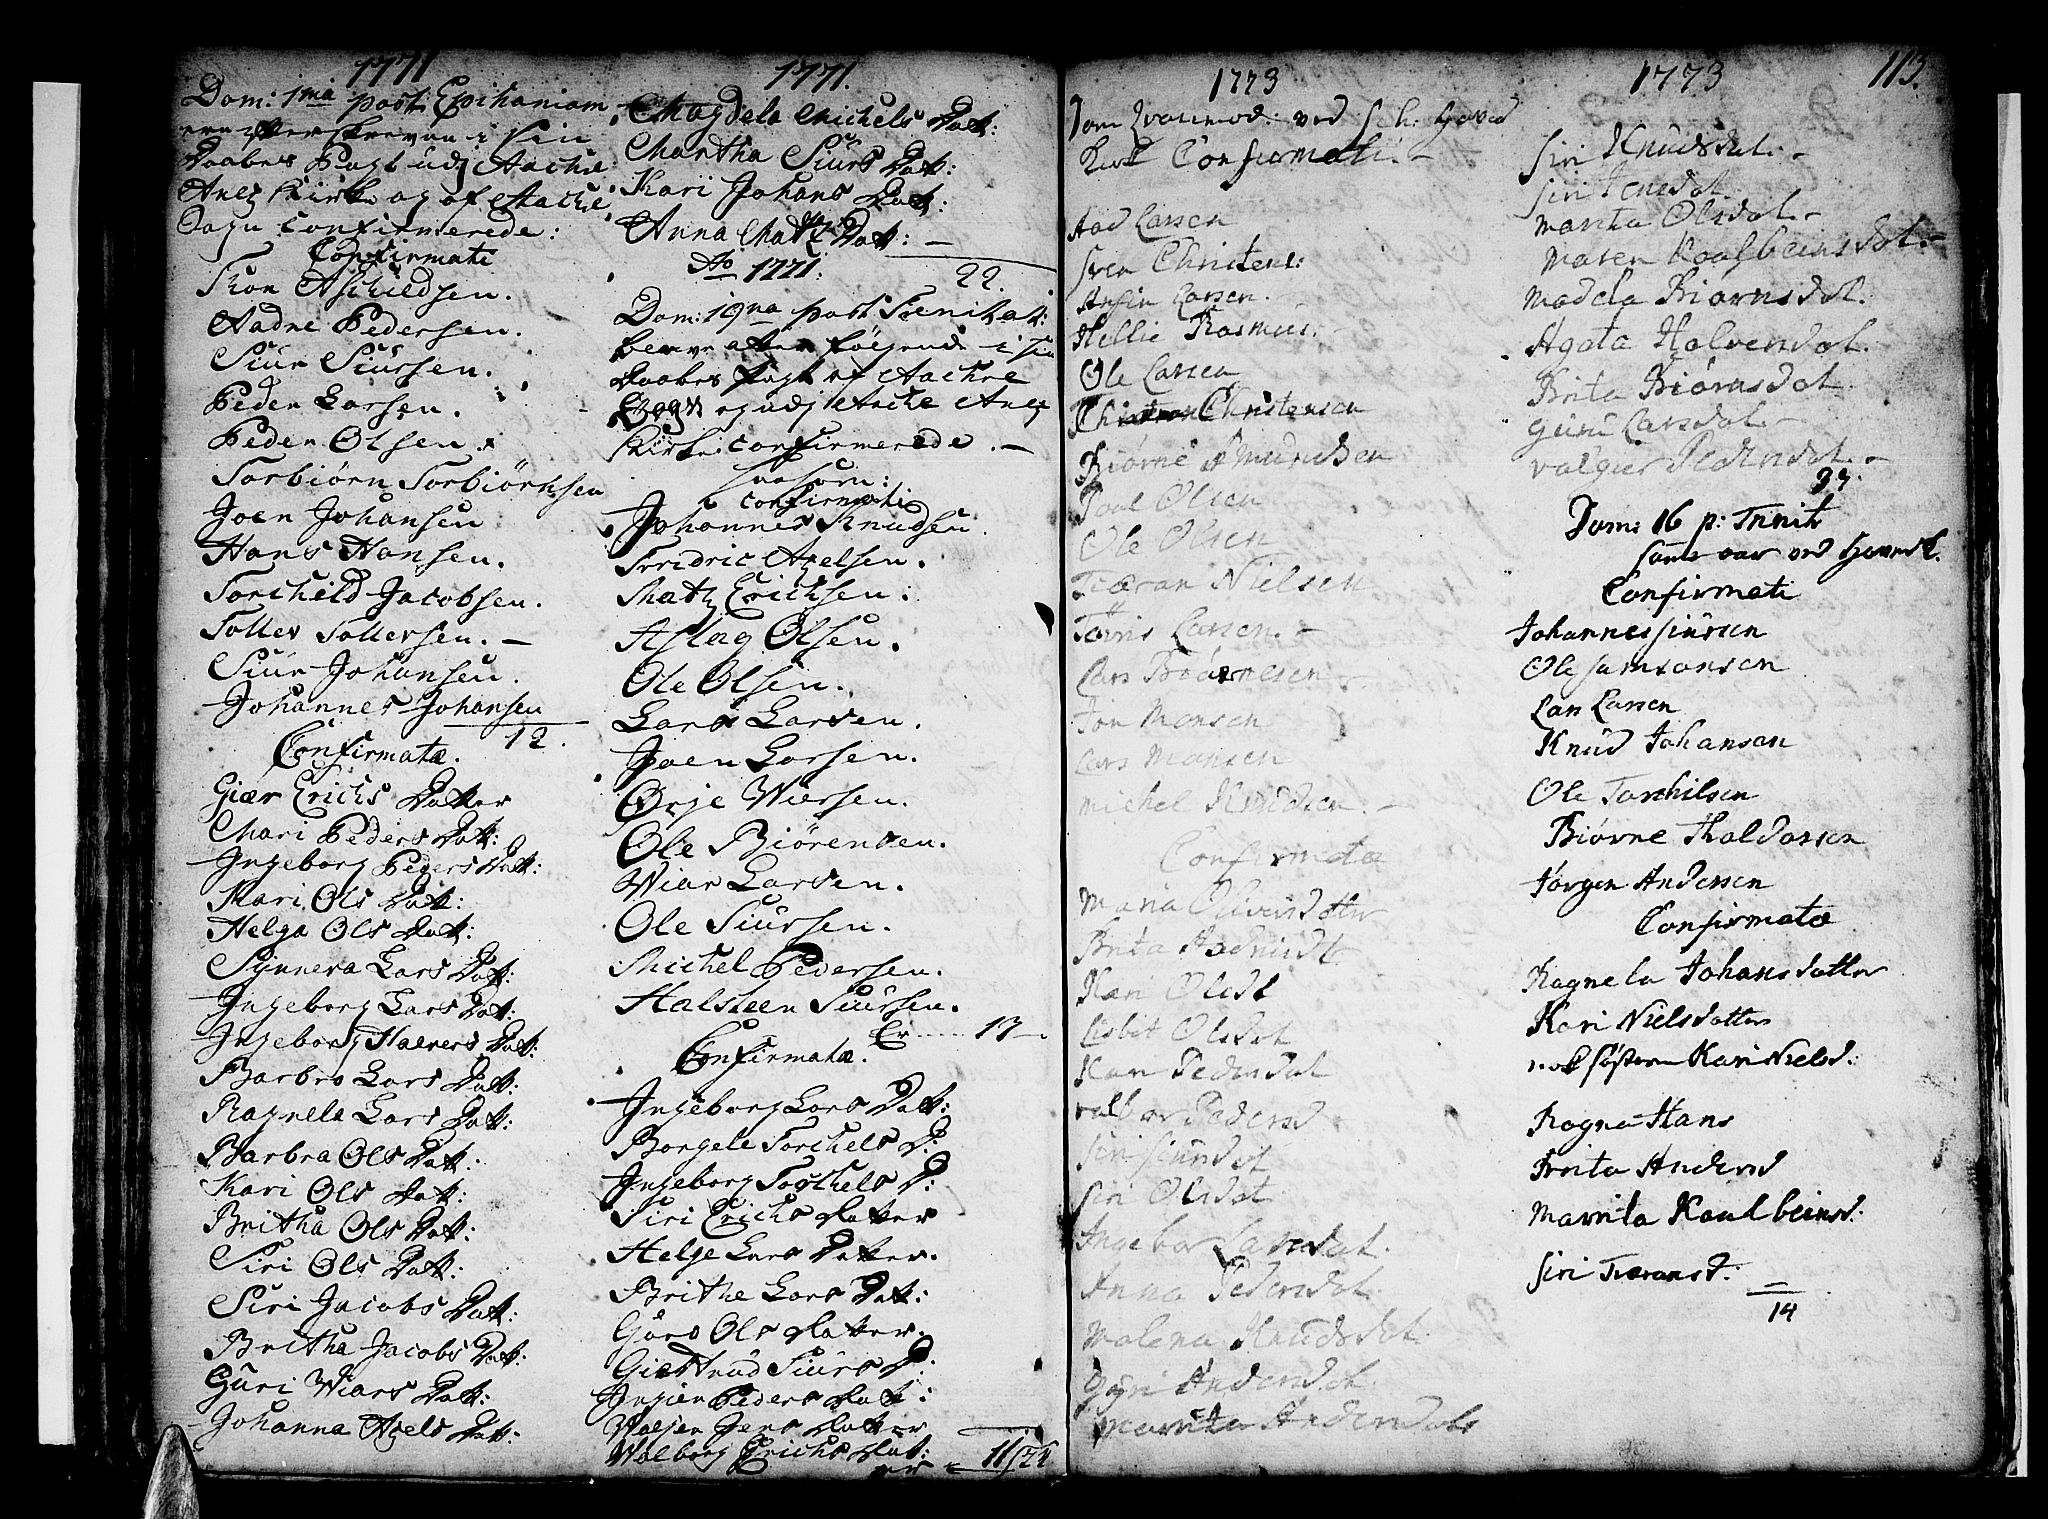 1771
Dom: 1ma post Epihaniam
ere efterskrevne i sin
Daabes Pagt udj Aachre
Anex Kirke og af Aachre
Sogn Confirmerede:
Confirmati
Thor Aschildsen.
Aadne Pedersen.
Siur Siursen.
Peder Larsen.
Peder Olsen.
Torbiørn Torbiörnsen
Joen Johansen
Hans Hansen.
Torchild Jacobsen.
Toller Tollersen. —
Siur Johansen.
Johannes Johansen
12.
Confirmatæ.
Giær Erichs Datter
Mari Peders Datt:
Ingeborg Peders Datt:
Mari Ols Datt:
Helga Ols Datt:
Synneva Lars Dat:
Ingeborg Lars Dat:
Ingeborg Haevers Dat:
Barbro Lars Datt:
Ragnela Lars Dat:
Barbra Ols Dat:
Kari Ols Dat:
Britha Ols Dat:
Siri Ols Datt:
Siri Jacobs Datt:
Britha Jacobs Dat:
Guri Wiars Dat:
Johanna Axels Dat:
1771.
Magdela Michels Dat:
Martha Siurs Dat:
Kari Johans Dat:
Anna Mats Dat: —
22.
Ao 1771.
Dom: 19na post Trenitat:
bleve efter følgende i sin
Daabes Pagt af Aachre
Sogn og udj Aachre Anex
Kirke confirmerede. —
saasom:
confirmati
Johannes Knudsen
Fridric Axelsen.
Matz Erichsen:
Aslag Olsen.
Ole Olsen.
Lars Larsen.
Joen Larsen.
Ørje Wiersen.
Ole Biörensen.
Wiar Larsen.
Ole Siursen.
Michel Pedersen.
Halsteen Siursen.
Er 13
Confirmatæ.
Ingeborg Lars Dat:
Borgele Torchels D:
Ingeborg Torchels D:
Siri Erichs Datter
Helge Lars Datter.
Brithe Lars Dat:
Guro Ols Datter.
Giertrud Siurs D:
Ingier Peders Dat:
Jens Datter
Walborg Erichs Dat:
er 11/24
1773
Dom Qvasimod: ved
Kirke Confirmati. —
Aad Larsen
Sven Christens:
Ansin Larsen.
Hellie Rasmus: —
Ole Larsen
Christensen
Biørne Amundsen
Poul Olsen
Ole Olsen
Tiæran Nielsen
Tönis Larsen. —
Lars Biörnesen —
Jon Monsen
Lars Monsen
Michel Knudsen. —
Confirmatæ
Maria Olivers datter
Brita
Kari Olsdt
Lisbet Olsdot
Kari Pedersdot
valbor Pedersd
Siri Siursdot
Siri Olsdot
Ingebor Larsdot.
Anna Pedersdot.
Malena Knudsdot.
Gyri Andersdot.
Marita Andersdot
1773 113.
Siri Knudsdot. —
Siri Jensdot
Marita Olsdot. —
Maren Kaalbeinsdot. —
Madela Biørnsdot.
Agata Halversdot.
Brita Biörnsdot.
Guru Larsdot. —
Valgier Pedersdot. —
37.
Dom: 16 p: Trinit
samme aar ved
Confirmati
Johannes Siursen
Ole Samsonsen
Lars Larsen
Knud Johansen
Ole Torchilsen
Biørne Haldorsen
Jörgen Andersen
Confirmatæ
Ragnela Johans datter
Kari Niels datter
nok Søsteren Kari Nielsd:
Ragna Hans
Brita Andersd
Marrita Kaulbeinsd:
Siri Tiæransd:
14